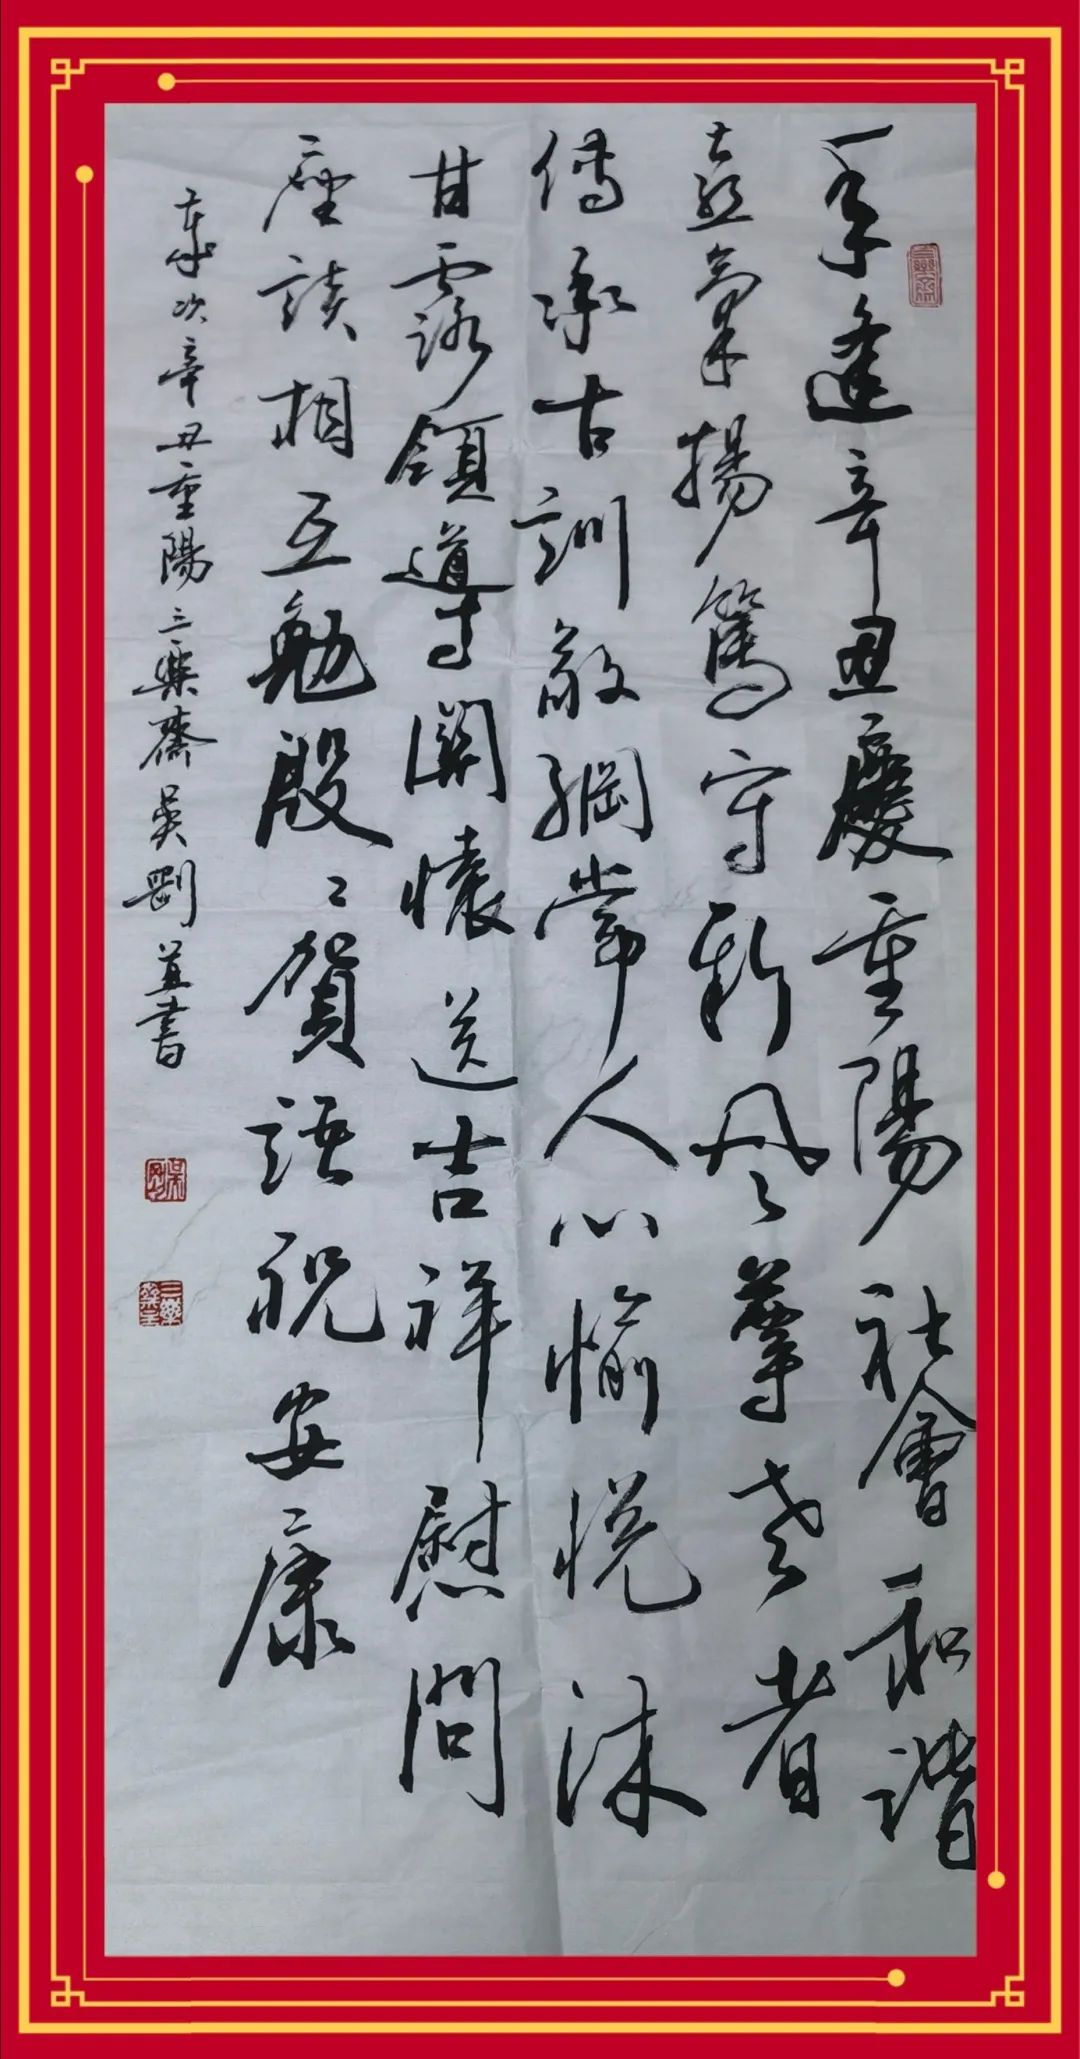 年逢辛丑慶重陽社會和諧
喜氣揚篤守新風尊老者
傳承古訓敬綱常人心愉悅沐
甘露領導關懷送吉祥慰問
座談相互勉殷〻賀語祝安康
歲次辛丑重陽三樂齋吳剛並書